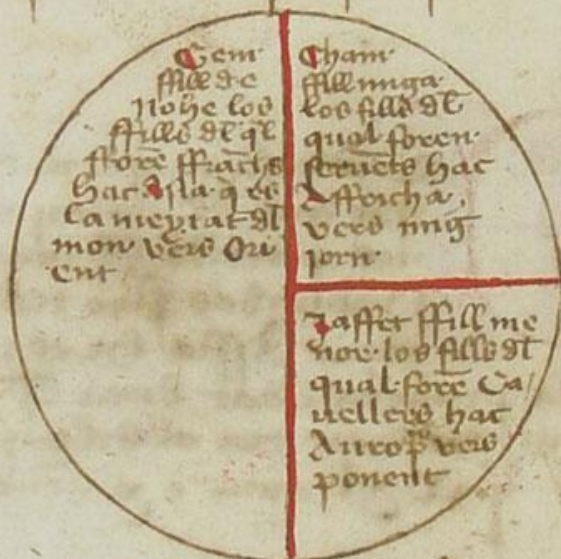 Sem
ffill de
nohe los
ffills dl ql
fforē ffrāchs
hac Asia q es
la meytat dl
mon vers Ori
ent
Cham
ffill miga
los fills dl
qual foren
servēts hac
Affricha
vers mig
jorn
Jaffet ffill me
nor los fills dl
qual forē Ca
vellers hac
Aurop̄ vers
ponent